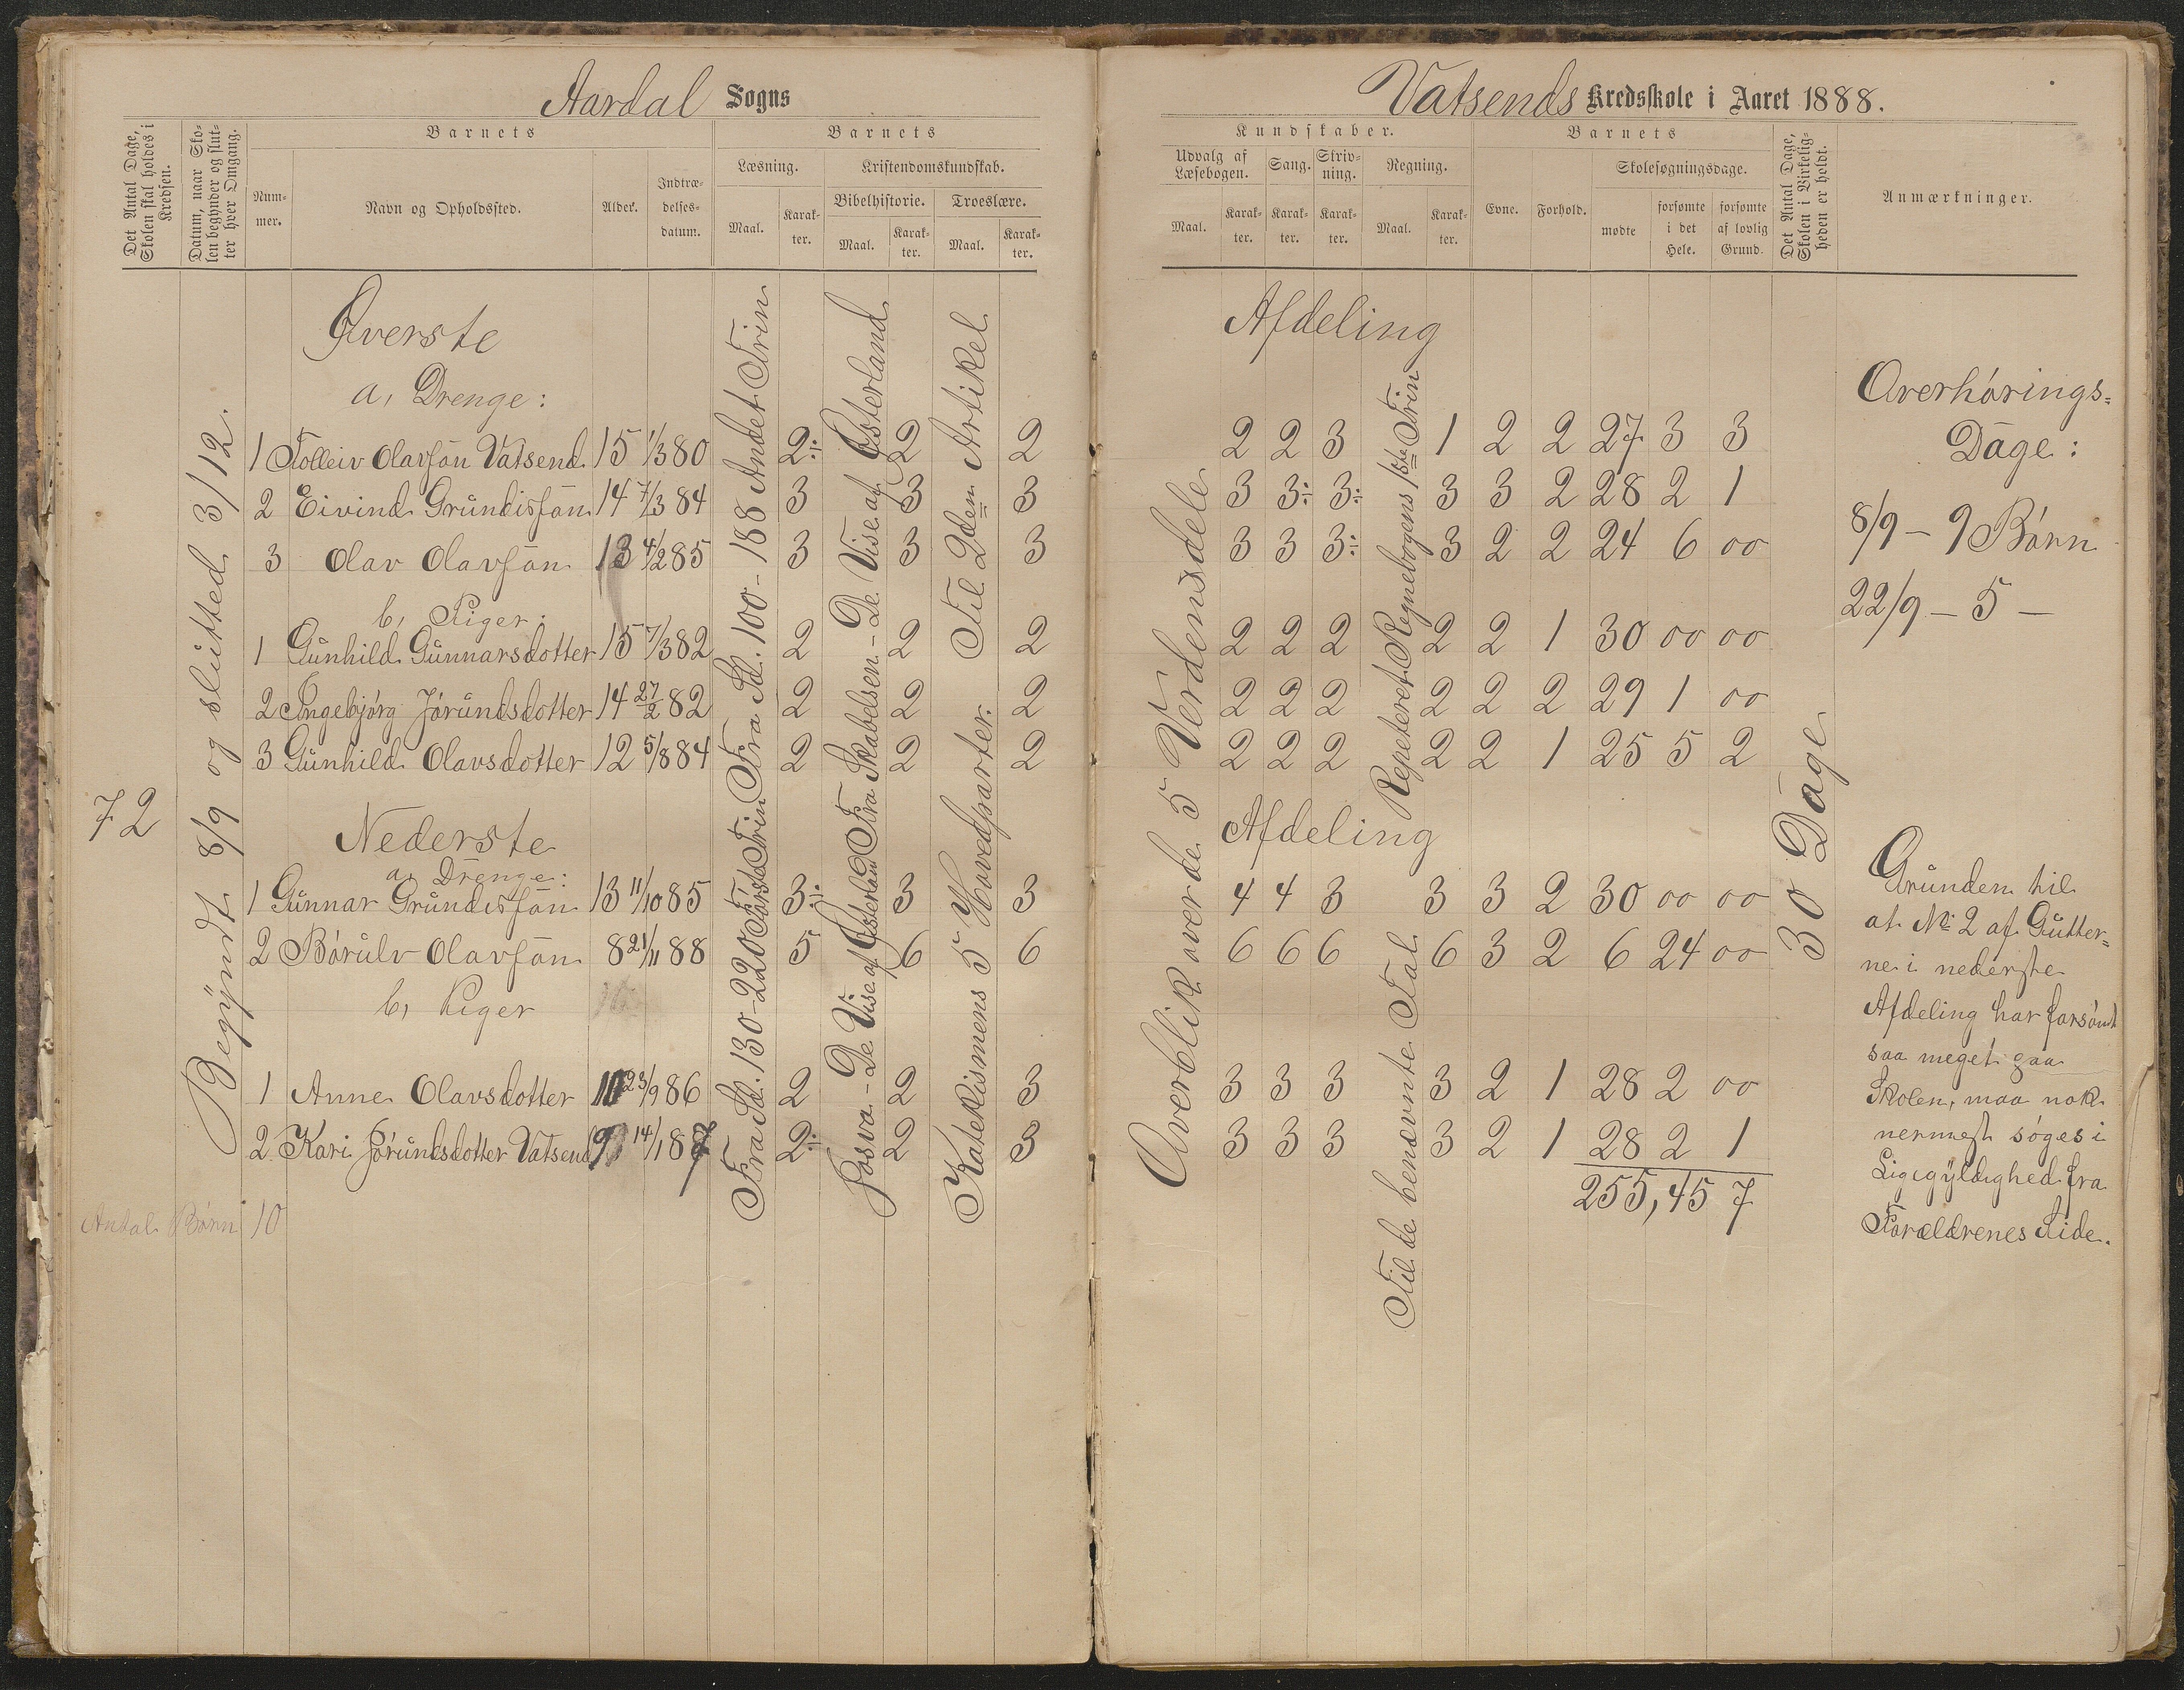 Aardal Sogns
Det Antal Dage, Skolen skal holdes i Kredsen.
Datum, naar Skolen begynder og slutter hver Omgang.
Barnets
Nummer.
Navn og Opholdssted.
Alder.
Indtrædelsesdatum.
Barnets
Læsning.
Maal.
Karakter.
Kristendomskundskab.
Bibelhistorie.
Maal.
Karakter.
Troeslære.
Maal.
Karakter.
72
Begyndt 8/9 og sluttet 3/12.
Øverste
a, Drenge:
1 Tolleiv Olavsøn Vatsend 15 1/3 80 2÷ 2 2
2 Eivind Grundisøn 14 7/3 84 3 3 3
3 Olav Olavsøn 13 4/2 85 3 3 3
b, Piger:
1 Gunhild Gunnarsdotter 15 7/3 82 2 2 2
2 Ingebjørg Jørundsdotter 14 27/2 82 2 2 2
3 Gunhild Olavsdotter 12 5/8 84 2 2 2
Nederste
a, Drenge:
1 Gunnar Grundisøn 13 11/10 85 3÷ 3 3
2 Børulv Olavsøn 8 21/11 88 5 6 6
b, Piger
1 Anne Olavsdotter 10 23/9 86 2 2 3
2 Kari Jørundsdotter Vatsend 9 14/1 87 2÷ 2 3
Antal Børn 10
Fra Sd. 100-188 Andet Trin
Fra Sd. 130-220 Første Trin
Fra Skabelsen - De Vise af Østerland
Josva - De Vise af Østerland
Til 2den Artikel
Katekismens 5 Hovedparter.
Vatsends Kredsskole i Aaret 1888.
Kundskaber.
Udvalg af Læsebogen.
Maal.
Karakter.
Sang.
Karakter.
Skrivning.
Karakter.
Regning.
Maal.
Karakter.
Barnets
Evne.
Forhold.
Skolesøgningsdage.
mødte
forsømte i det Hele.
forsømte af lovlig Grund.
Det Antal Dage, Skolen i Virkeligheden er holdt.
Anmærkninger.
Afdeling
2 2 3 1 2 2 27 3 3
3 3÷ 3÷ 3 3 2 28 2 1
3 3 3÷ 3 2 2 24 6 00
2 2 2 2 2 1 30 00 00
2 2 2 2 2 2 29 1 00
2 2 2 2 2 1 25 5 2
Afdeling
4 4 3 3 3 2 30 00 00
6 6 6 6 3 2 6 24 00
3 3 3 3 2 1 28 2 00
3 3 3 3 2 1 28 2 1
255, 45 7
Overblik over de 5 Verdensdele
Repeteret Regnebogens 1ste Trin
Til de benævnte Tal
30 Dage
Overhørings=
Dage:
8/9 - 9 Børn
22/9 - 5 -
Grunden til
at No 2 af Gutter=
ne i nederste
Afdeling har forsømt
saa meget paa
Skolen, maa nok
nermest søges i
Ligegyldighed fra
Forældrenes Side.